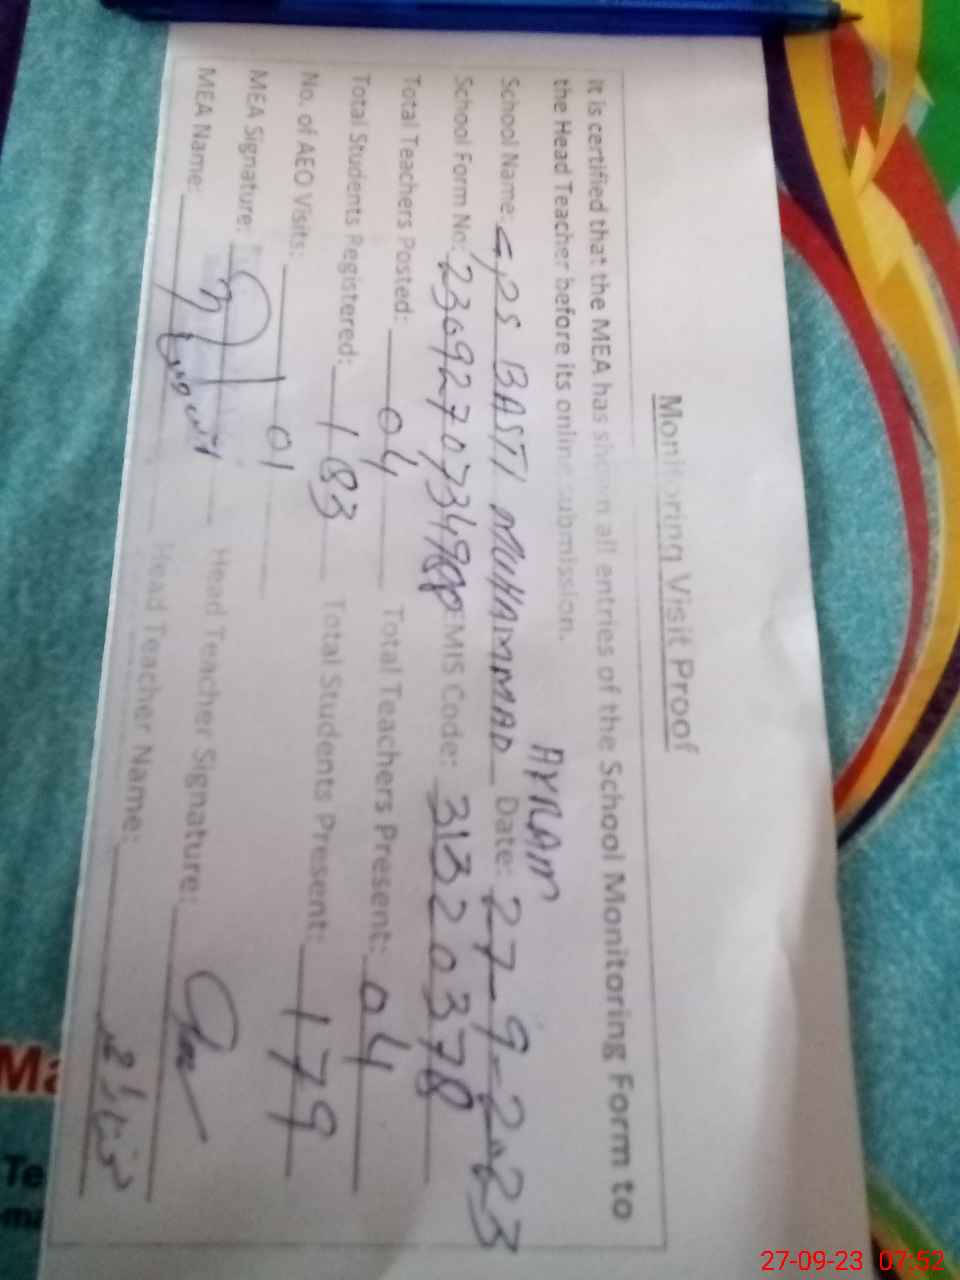 Monitoring Visit Proof
It is certified that the MEA has shown all entries of the School Monitoring Form to
the Head Teacher before its online submission.
AKRAM
School Name: G,PS BASTI MUHAMMAD Date: 27-9-2023
School Form No: EMIS Code: 31320378
Total Teachers Posted: 04 Total Teachers Present: 04
Total Students Registered: 183 Total Students Present: 179
No. of AEO Visits: 01
MEA Signature: Head Teacher Signature:
MEA Name: Head Teacher Name:
Ma
Te
ma
27-09-23 07:52